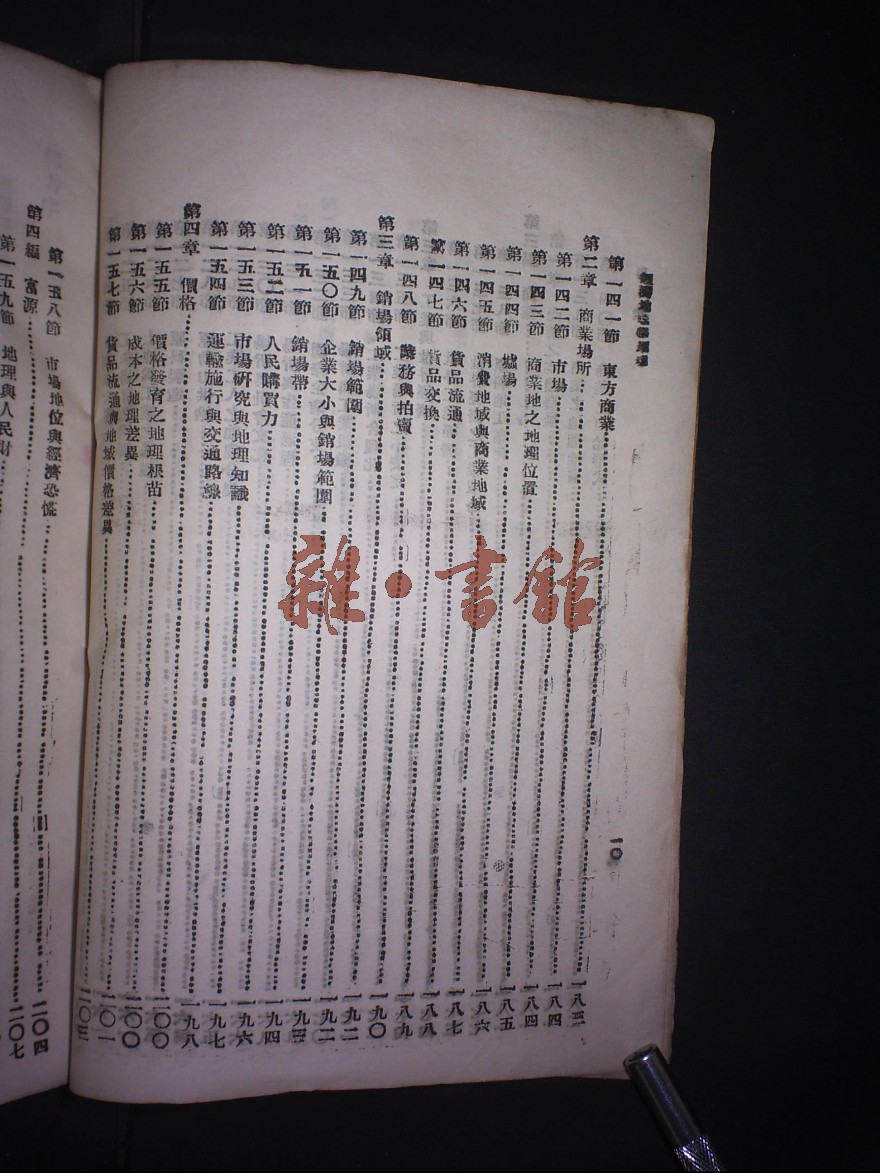 經濟地理學原理
一〇
第一四一節 東方商業 一八三
第二章 商業場所 一八四
第一四二節 市場 一八四
第一四三節 商業地之地理位置 一八五
第一四四節 墟場 一八六
第一四五節 消費地域與商業地域 一八七
第一四六節 貨品流通 一八八
第一四七節 貨品交換 一八九
第一四八節 業務與拍賣 一九〇
第三章 銷場領域 一九二
第一四九節 銷場範圍 一九二
第一五〇節 企業大小與銷場範圍 一九三
第一五一節 銷場帶 一九四
第一五二節 人民購買力 一九六
第一五三節 市場研究與地理知識 一九七
第一五四節 運輸施行與交通路線 一九八
第四章 價格 二〇〇
第一五五節 價格發育之地理根苗 二〇〇
第一五六節 成本之地理差異 二〇一
第一五七節 貨品流通與地域價格差異 二〇三
第一五八節 市場地位與經濟恐慌 二〇四
第四編 富源 二〇七
第一五九節 地理與人民財
雜·書館